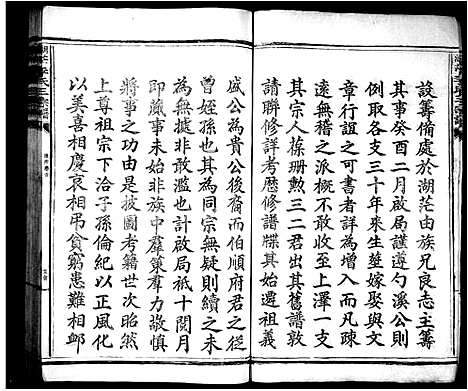 設籌備處於湖茫由族兄良志主籌
其事癸酉二月啟局謹遵勺溪公則
例取各支三十年來生莛嫁娶與文
章行誼之可書者詳為增入而凡疎
遠無稽之派概不敢收至上澤一支
其宗人葆珊勲三二君出其舊譜敦
請聯修詳考歷修譜牒其始遷祖義
盛公為貴公後裔而伯順府君之從
曾姪孫也其為同宗無疑則續之未
為無據非敢濫也計啟局祇十閱月
即蕆事未始非族中羣策羣力敬慎
將事之功由是披圖考籍世次昭然
上尊祖宗下洽子孫倫紀以正風化
以美喜相慶哀相弔貧窮患難相卹